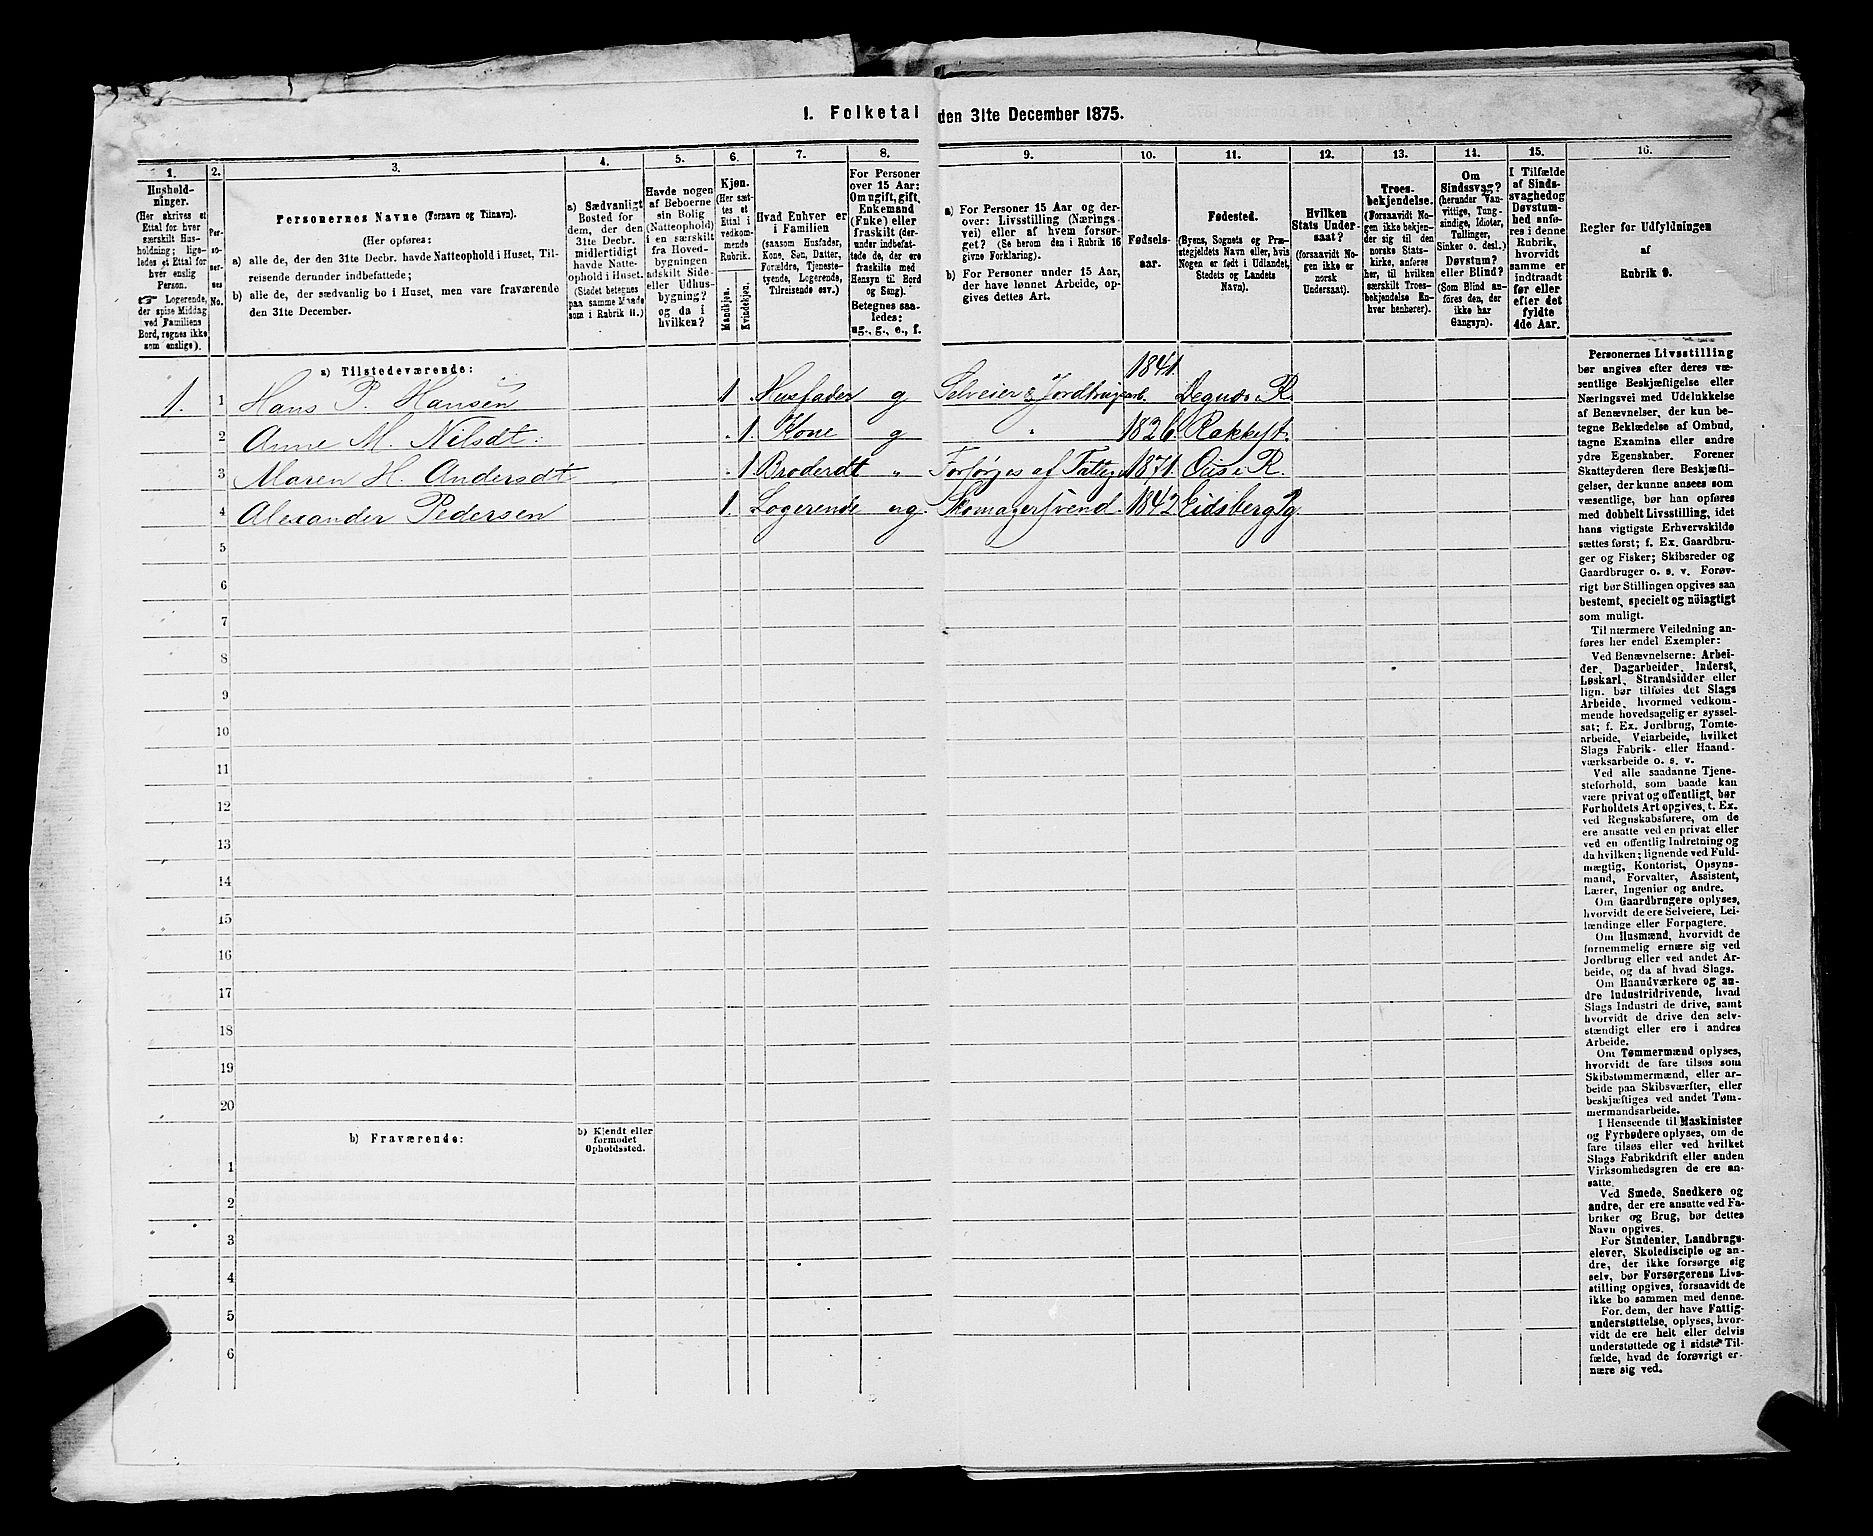 I. Folketal den 31te December 1875.
1.
Hushold-
ninger.
(Her skrives et
Ettal for hver
særskilt Hus-
holdning; lige-
ledes et Ettal for
hver enslig
Person.
Logerende,
der spise Middag
ved Familiens
Bord, regnes ikke
som enslige).
2.
Per-
so-
ner-
nes
No.
3.
Personernes Navne (Fornavn og Tilnavn).
(Her opføres:
a) alle de, der den 31te Decbr. havde Natteophold i Huset, Til-
reisende derunder indbefattede;
b) alle de, der sædvanlig bo i Huset, men vare fraværende
den 31te December.
4.
a) Sædvanligt
Bosted for
dem, der den
31te Decbr.
midlertidigt
havde Natte-
ophold i Huset.
(Stedet betegnes
paa samme Maade
som i Rubrik 11.)
5.
Havde nogen
af Beboerne
sin Bolig
(Natteophold)
i en særskilt
fra Hoved-
bygningen
adskilt Side-
eller Udhus-
bygning?
og da i
hvilken?
6.
Kjøn.
(Her sæt-
tes et
Ettal i
vedkom-
mende
Rubrik.
Mandkjøn.
Kvindekjøn.
7.
Hvad Enhver er
i Familien
(saasom Husfader,
Kone, Søn, Datter,
Forældre, Tjeneste-
tyende, Logerende,
Tilreisende osv.)
8.
For Personer
over 15 Aar:
Om ugift, gift,
Enkemand
(Enke) eller
fraskilt (der-
under indbefat-
tede de, der ere
fraskilte med
Hensyn til Bord
og Seng).
Betegnes saa-
ledes:
ug., g., e., f.
9.
a) For Personer 15 Aar og der-
over: Livsstilling (Nærings-
vei) eller af hvem forsør-
get? (Se herom den i Rubrik 16
givne Forklaring).
b) For Personer under 15 Aar,
der have lønnet Arbeide, op-
gives dettes Art.
10.
Fødsels-
aar.
11.
Fødested.
(Byens, Sognets og Præ-
stegjeldets Navn eller, hvis
Nogen er født i Udlandet,
Stedets og Landets
Navn).
12.
Hvilken
Stats Under-
saat?
(forsaavidt No-
gen ikke er
norsk
Undersaat).
13.
Troes-
bekjendelse.
(Forsaavidt No-
gen ikke bekjen-
der sig til den
norske Stats-
kirke, anføres
her, til hvilken
særskilt Troes-
bekjendelse En-
hver henhører).
14.
Om
Sindssvag?
(herunder Van-
vittige, Tung-
sindige, Idioter,
Tullinger,
Sinker o. desl.)
Døvstum?
eller Blind?
(Som Blind an-
føres den, der
ikke har
Gangsyn).
15.
I Tilfælde
af Sinds-
svaghed og
Døvstum-
hed anfø-
res i denne
Rubrik,
hvorvidt
samme er
indtraadt
før eller
efter det
fyldte
4de Aar.
16.
Regler for Udfyldningen
af
Rubrik 9.
a) Tilstedeværende:
1. 1 Hans P. Hansen 1 Husfader g Selveier & Jordbrugearb. 1841. R.
2 Anne M. Nilsdt. " 1. Kone g " 1826. Rakkest.
3 Maren H. Andersdt " 1 Broderdt " Forsørges af 1871. R.
4 Alexander Pedersen 1. Logerende ug. Skomagersvend. 1842 Eidsberg Pg
5
6
7
8
9
10
11
12
13
14
15
16
17
18
19
20
b) Fraværende:
b) Kjendt eller
formodet
Opholdssted.
1
2
3
4
5
6
Personernes Livsstilling
bør angives efter deres væ-
sentlige Beskjæftigelse eller
Næringsvei med Udelukkelse
af Benævnelser, der kun be-
tegne Beklædelse af Ombud,
tagne Examina eller andre
ydre Egenskaber. Forener
Skatteyderen flere Beskjæfti-
gelser, der kunne ansees som
væsentlige, bør han opføres
med dobbelt Livsstilling, idet
hans vigtigste Erhvervskilde
sættes først; f. Ex. Gaardbru-
ger og Fisker; Skibsreder og
Gaardbruger o. s. v. Forøv-
rigt bør Stillingen opgives saa
bestemt, specielt og nöiagtigt
som muligt.
Til nærmere Veiledning an-
føres her endel Exempler:
Ved Benævnelserne: Arbei-
der, Dagarbeider, Inderst,
Løskarl, Strandsidder eller
lign. bør tilføies det Slags
Arbeide, hvormed vedkom-
mende hovedsagelig er syssel-
sat; f. Ex. Jordbrug, Tomte-
arbeide, Veiarbeide, hvilket
Slags Fabrik- eller Haand-
værksarbeide o. s. v.
Ved alle saadanne Tjene-
steforhold, som baade kan
være privat og offentligt, bør
Forholdets Art opgives, t. Ex.
ved Regnskabsførere, om de
ere ansatte ved en privat eller
ved en offentlig Indretning og
da hvilken; lignende ved Fuld-
mægtig, Kontorist, Opsyns-
mand, Forvalter, Assistent,
Lærer, Ingeniør og andre.
Om Gaardbrugere oplyses,
hvorvidt de ere Selveiere, Lei-
lændinge eller Forpagtere.
Om Husmænd, hvorvidt de
fornemmelig ernære sig ved
Jordbrug eller ved andet Ar-
beide, og da af hvad Slags.
Om Haandværkere og an-
dre Industridrivende, hvad
Slags Industri de drive, samt
hvorvidt de drive den selv-
stændigt eller ere i andres
Arbeide.
Om Tømmermænd oplyses,
hvorvidt de fare tilsøs som
Skibstømmermænd, eller ar-
beide paa Skibsværfter, eller
beskjæftiges ved andet Tøm-
mermandsarbeide.
I Henseende til Maskinister
og Fyrbødere oplyses, om de
fare tilsøs eller ved hvilket
Slags Fabrikdrift eller anden
Virksomhedsgren de ere an-
satte.
Ved Smede, Snedkere og
andre, der ere ansatte ved Fa-
briker og Brug, bør dettes
Navn opgives.
For Studenter, Landbrugs-
elever, Skoledisciple og an-
dre, der ikke forsørge sig
selv, bør Forsørgerens Livs-
stilling opgives, forsaavidt de
ikke bo sammen med denne.
For dem, der have Fattig-
understøttelse, oplyses, hvor-
vidt de ere helt eller delvis
understøttede og i sidste Til-
fælde, hvad de forøvrigt er-
nære sig ved.